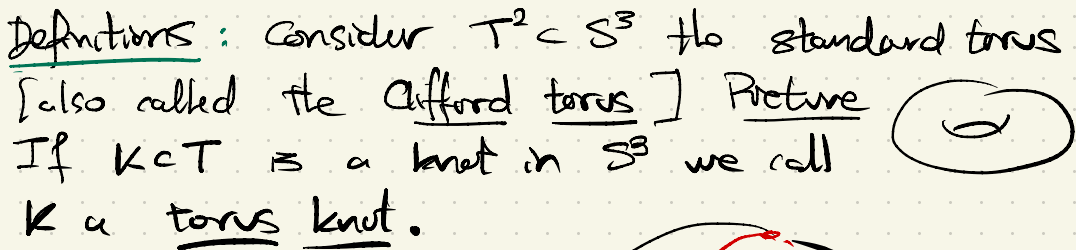 Definitions: Consider T² ⊂ S³ the standard torus
[also called the Clifford torus] Picture
If K⊂T is a knot in S³ we call
K a torus knot.